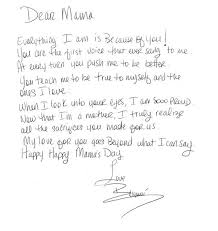 Dear Mama
Everything I am is Because of you!
You are the first voice that ever sang to me.
At every turn you push me to be better.
You teach me to be true to myself and the
ones I love.
When I look into your eyes, I am sooo proud.
Now that I'm a mother, I truly realize
all the sacrifices you made for us.
My love for you goes Beyond what I can say.
Happy Happy Mama's Day.
Love